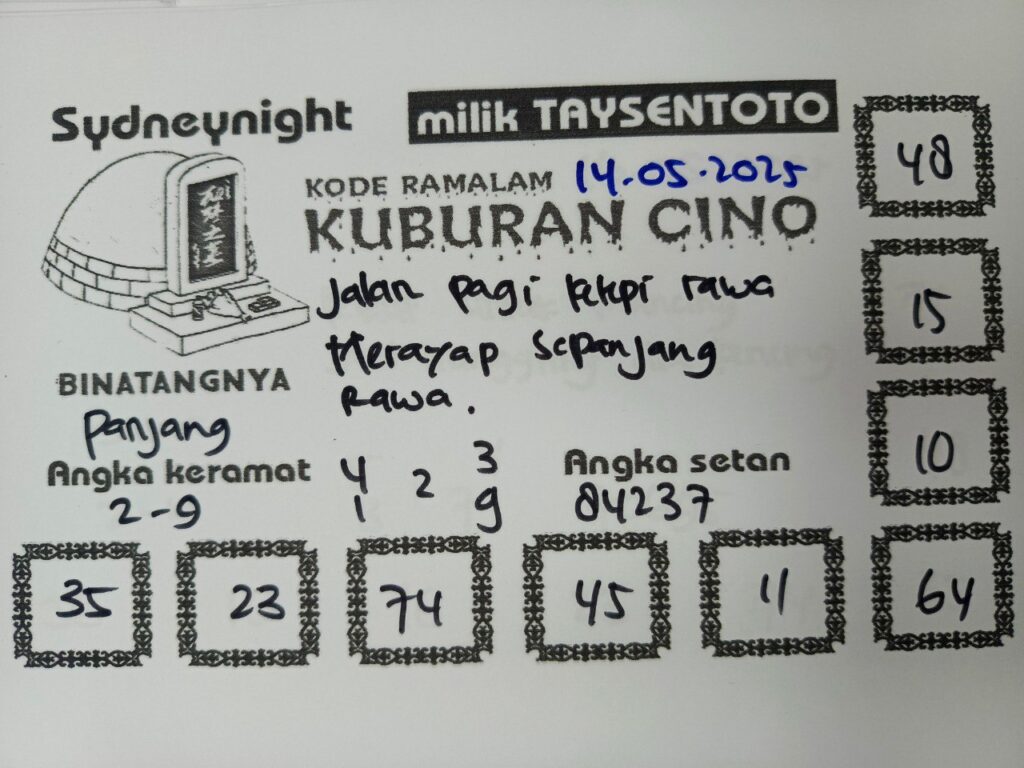 Sydneynight
milik TAYSENTOTO
KODE RAMALAM 14.05.2025
KUBURAN CINO
Jalan pagi rawa
Merayap sepanjang
Rawa.
BINATANGNYA
Panjang
Angka keramat
2-9
4 3
2
1 9
Angka setan
84237
48
15
10
35 23 74 45 11 64